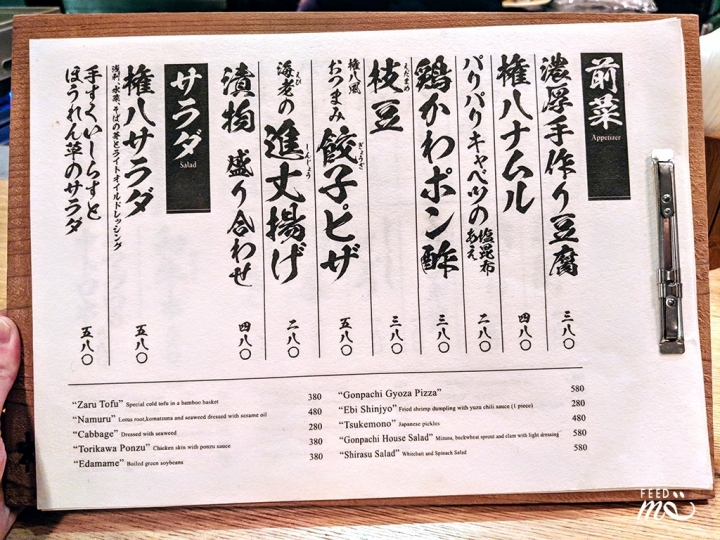 前菜
Appetizer
濃厚手作り豆腐 三八〇
権八ナムル 四八〇
パリパリキャベツの塩昆布あえ 二八〇
鶏かわポン酢 三八〇
枝豆 三八〇
えだまめ
権八風
おつまみ 餃子ピザ 五八〇
ぎょうざ
海老の進丈揚げ 二八〇
えび
しんじょう
漬物 盛り合わせ 四八〇
サラダ
Salad
権八サラダ 五八〇
浅利、水菜、そばの芽とライトオイルドレッシング
手すくいしらすと
ほうれん草のサラダ 五八〇
"Zaru Tofu" Special cold tofu in a bamboo basket 380
"Namuru" Lotus root,komatsuna and seaweed dressed with sesame oil 480
"Cabbage" Dressed with seaweed 280
"Torikawa Ponzu" Chicken skin with ponzu sauce 380
"Edamame" Boiled green soybeans 380
"Gonpachi Gyoza Pizza" 580
"Ebi Shinjyo" Fried shrimp dumpling with yuzu chili sauce (1 piece) 280
"Tsukemono" Japanese pickles 480
"Gonpachi House Salad" Mizuna, buckwheat sprout and clam with light dressing 580
"Shirasu Salad" Whitebait and Spinach Salad 580
FEED
me